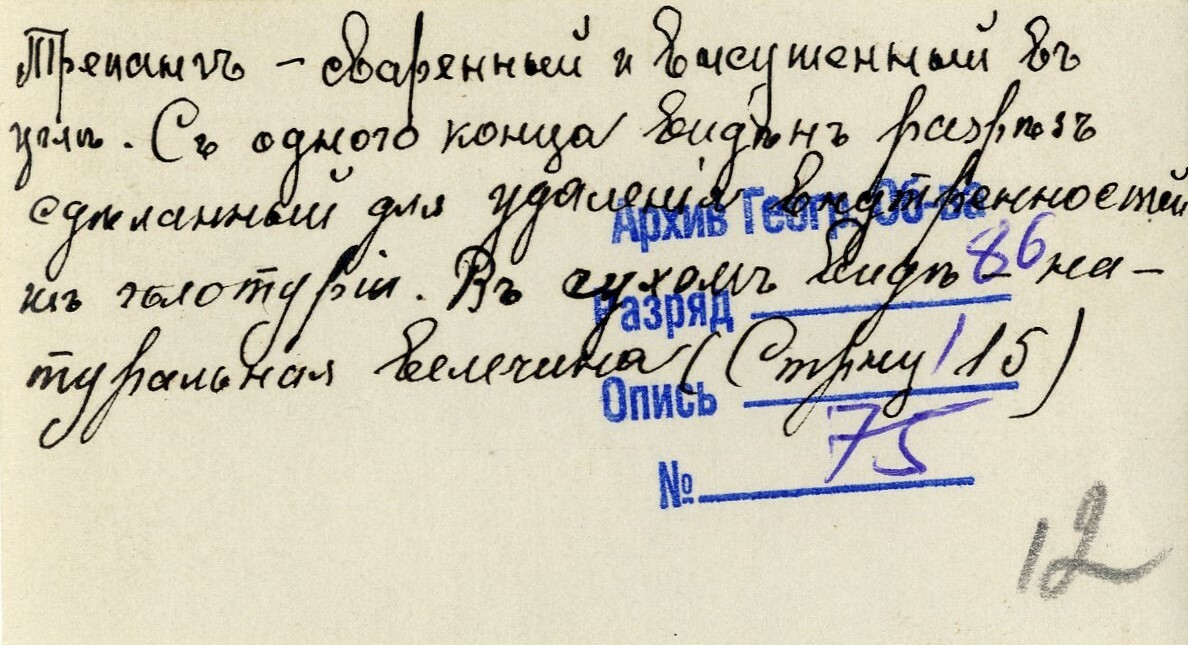 Трепангъ – сваренный и высушенный въ
углѣ. Съ одного конца видѣнъ разрѣзъ
сдѣланный для удаленія внутренностей
изъ голотуріи. Въ сухомъ видѣ – на-
туральная величина (Стрну 15)
Архив Геогр. Об-ва
Разряд 86
Опись 1
№ 75
12